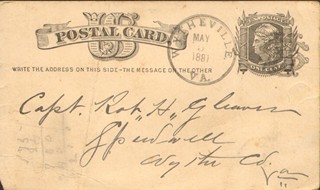 US
POSTAL CARD
WYTHEVILLE
MAY
1887
VA.
ONE CENT
WRITE THE ADDRESS ON THIS SIDE-THE MESSAGE ON THE OTHER
Capt. Rob't "H" Gleaves
Speedwell
Wythe Co.
Va
"